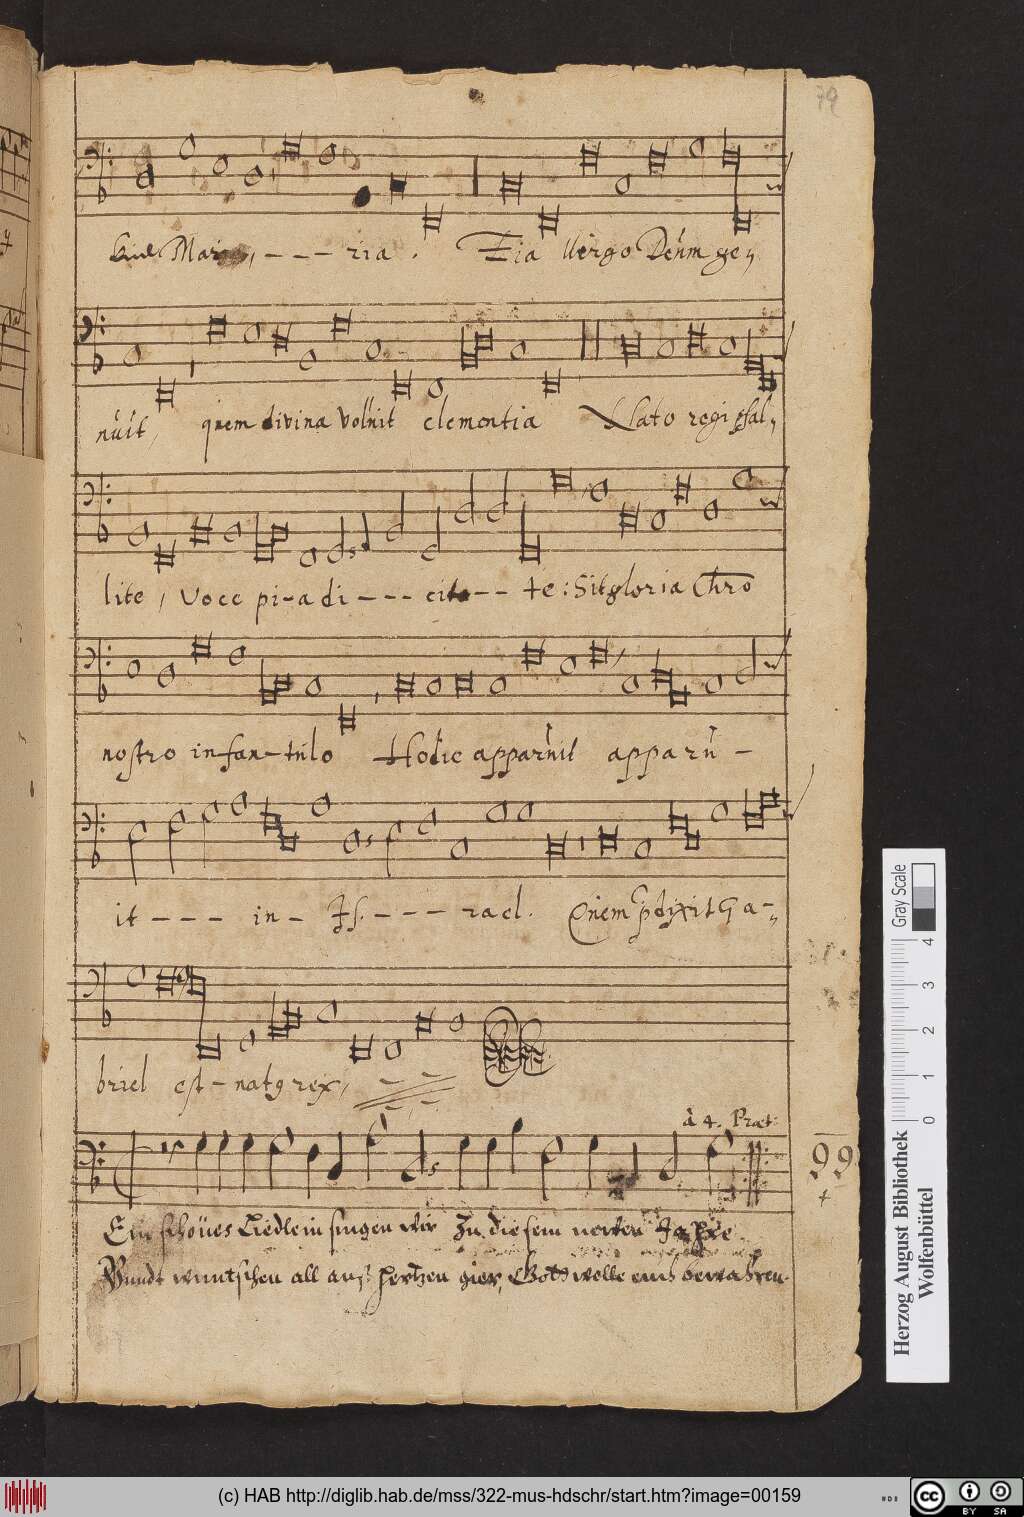 79
Maria, - - - ria. Eia Virgo Deum ge,
nuit, quem divina voluit clementia Nato regi psal,
lite, voce pi-a di - - - cite - - te: Sit gloria Chr̄o
nostro infan-tulo Hodie apparuit apparu -
it - - - in - Iſ. - - - rael. Quem p̄dixit Ga-,
briel est - natꝯ rex,
à 4. Præt:
99
Ein schönes Liedlein singen wir Zu diesem newen Jahre
Vundt wuntschen all auß hertzen gier, Gott wolle euch bewahren.
Gray Scale
0 1 2 3 4
Herzog August Bibliothek
Wolfenbüttel
(c) HAB http://diglib.hab.de/mss/322-mus-hdschr/start.htm?image=00159
cc BY SA